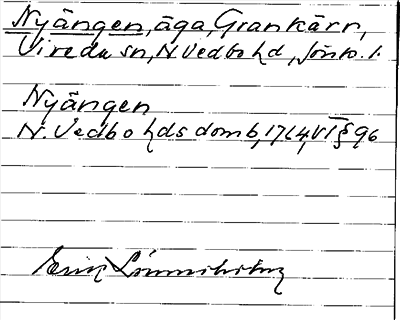 Nyängen, äga, Grankärr,
Vireda sn, N. Vedbo hd, Jönk. l.
Nyängen
N. Vedbo hds domb, 1764, VI § 96
Erik